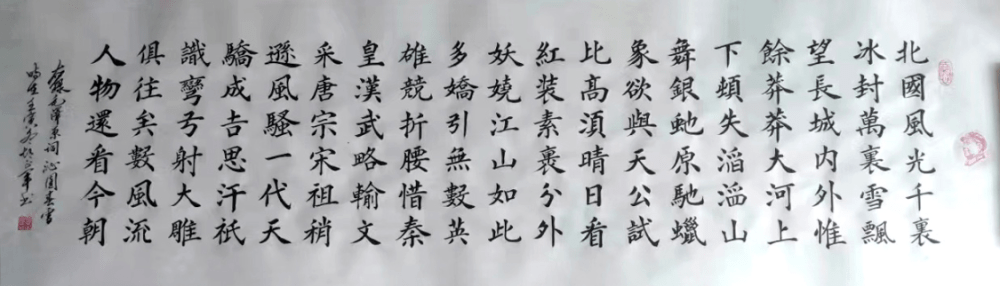 北國風光千裏
冰封萬裏雪飄
望長城内外惟
餘莽莽大河上
下頓失滔滔山
舞銀虵原馳蠟
象欲與天公試
比高須晴日看
紅装素裹分外
妖嬈江山如此
多嬌引無數英
雄競折腰惜秦
皇漢武略輸文
采唐宗宋祖稍
遜風騷一代天
驕成吉思汗衹
識彎弓射大雕
俱往矣數風流
人物還看今朝
毛澤東詞沁園春雪